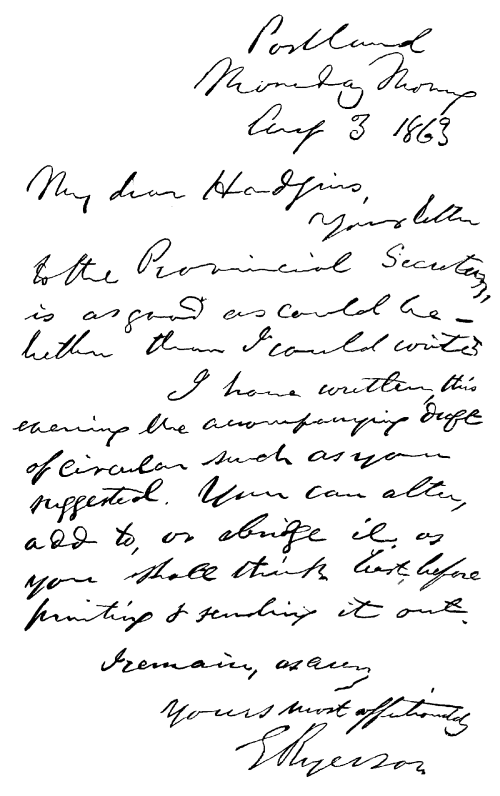 Portland
Monday Morng
Aug 3 1863
My dear Hodgins,
Your letter
to the Provincial Secretary,
is as good as could be –
better than I could write
I have written, this
evening the accompanying draft
of circular such as you
suggested. You can alter,
add to, or abridge it, as
you shall think best, before
printing & sending it out.
I remain, as ever,
Yours most affectionately
E Ryerson